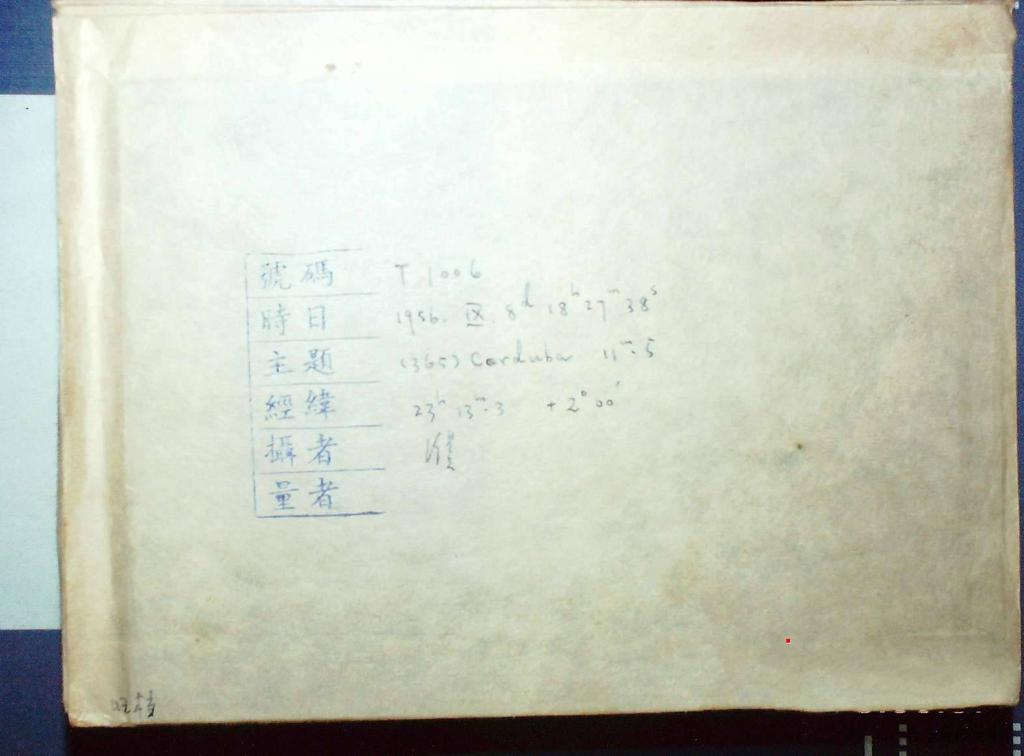 號碼 T 1006
時日 1956. IX. 8d 18h 27m 38s
主題 (365) Corduba 11m.5
經緯 23h 13m.3 +2° 00'
攝者
量者